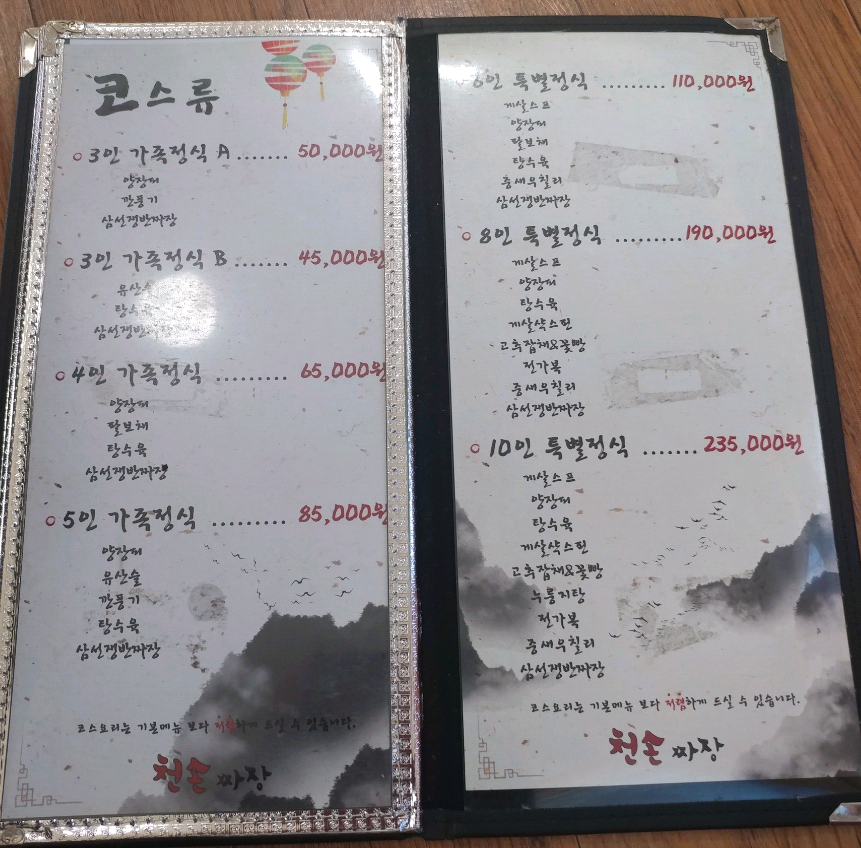 코스류
3인 가족정식 A ....... 50,000원
양장피
깐풍기
삼선쟁반짜장
3인 가족정식 B ....... 45,000원
유산
탕수육
삼선쟁반짜장
4인 가족정식 ......... 65,000원
양장피
팔보채
탕수육
삼선쟁반짜장
5인 가족정식 ......... 85,000원
양장피
유산슬
깐풍기
탕수육
삼선쟁반짜장
코스요리는 기본메뉴 보다 저렴하게 드실 수 있습니다.
천손 짜장
6인 특별정식 ......... 110,000원
게살스프
양장피
팔보채
탕수육
중새우칠리
삼선쟁반짜장
8인 특별정식 ......... 190,000원
게살스프
양장피
탕수육
게살샥스핀
고추잡채&꽃빵
전가복
중새우칠리
삼선쟁반짜장
10인 특별정식 ....... 235,000원
게살스프
양장피
탕수육
게살샥스핀
고추잡채&꽃빵
누룽지탕
전가복
중새우칠리
삼선쟁반짜장
코스요리는 기본메뉴 보다 저렴하게 드실 수 있습니다.
천손 짜장